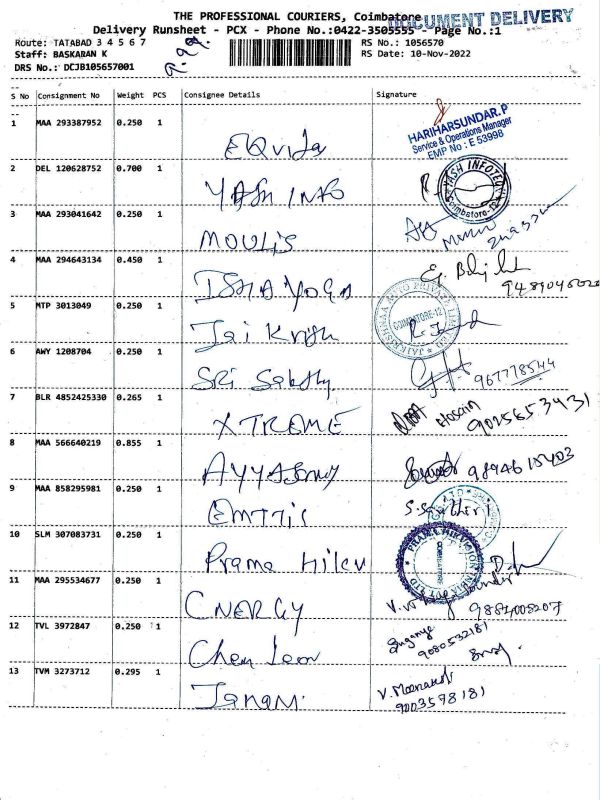 THE PROFESSIONAL COURIERS, Coimbatore
DOCUMENT DELIVERY
Delivery Runsheet - PCX - Phone No.:0422-3505555 - Page No.:1
Route: TATABAD 3 4 5 6 7
RS No.: 1056570
Staff: BASKARAN K
RS Date: 10-Nov-2022
DRS No.: DCJB105657001
S No Consignment No Weight PCS Consignee Details Signature
1 MAA 293387952 0.250 1
HARIHARSUNDAR.P
Service & Operations Manager
EMP No : E 53998
2 DEL 120628752 0.700 1 YASH INFO
YASH INFOTECH
Coimbatore-12
3 MAA 293041642 0.250 1 MOULIS
4 MAA 294643134 0.450 1 ISHA YOGA
5 MTP 3013049 0.250 1 Jai Krish
JAIKRISHNAA AUTO PRIVATE LIMITED
COIMBATORE-12
6 AWY 1208704 0.250 1 SRI Sakthy
9677778544
7 BLR 4852425330 0.265 1 XTREME
Hossain 9025653431
8 MAA 566640219 0.855 1
9894618403
9 MAA 858295981 0.250 1
10 SLM 307083731 0.250 1 Prama Hikv
COIMBATORE
11 MAA 295534677 0.250 1 CNERGY
12 TVL 3972847 0.250 1
Suganya
9080532181
13 TVM 3273712 0.295 1 Janani
V. Meenakshi
9003598181